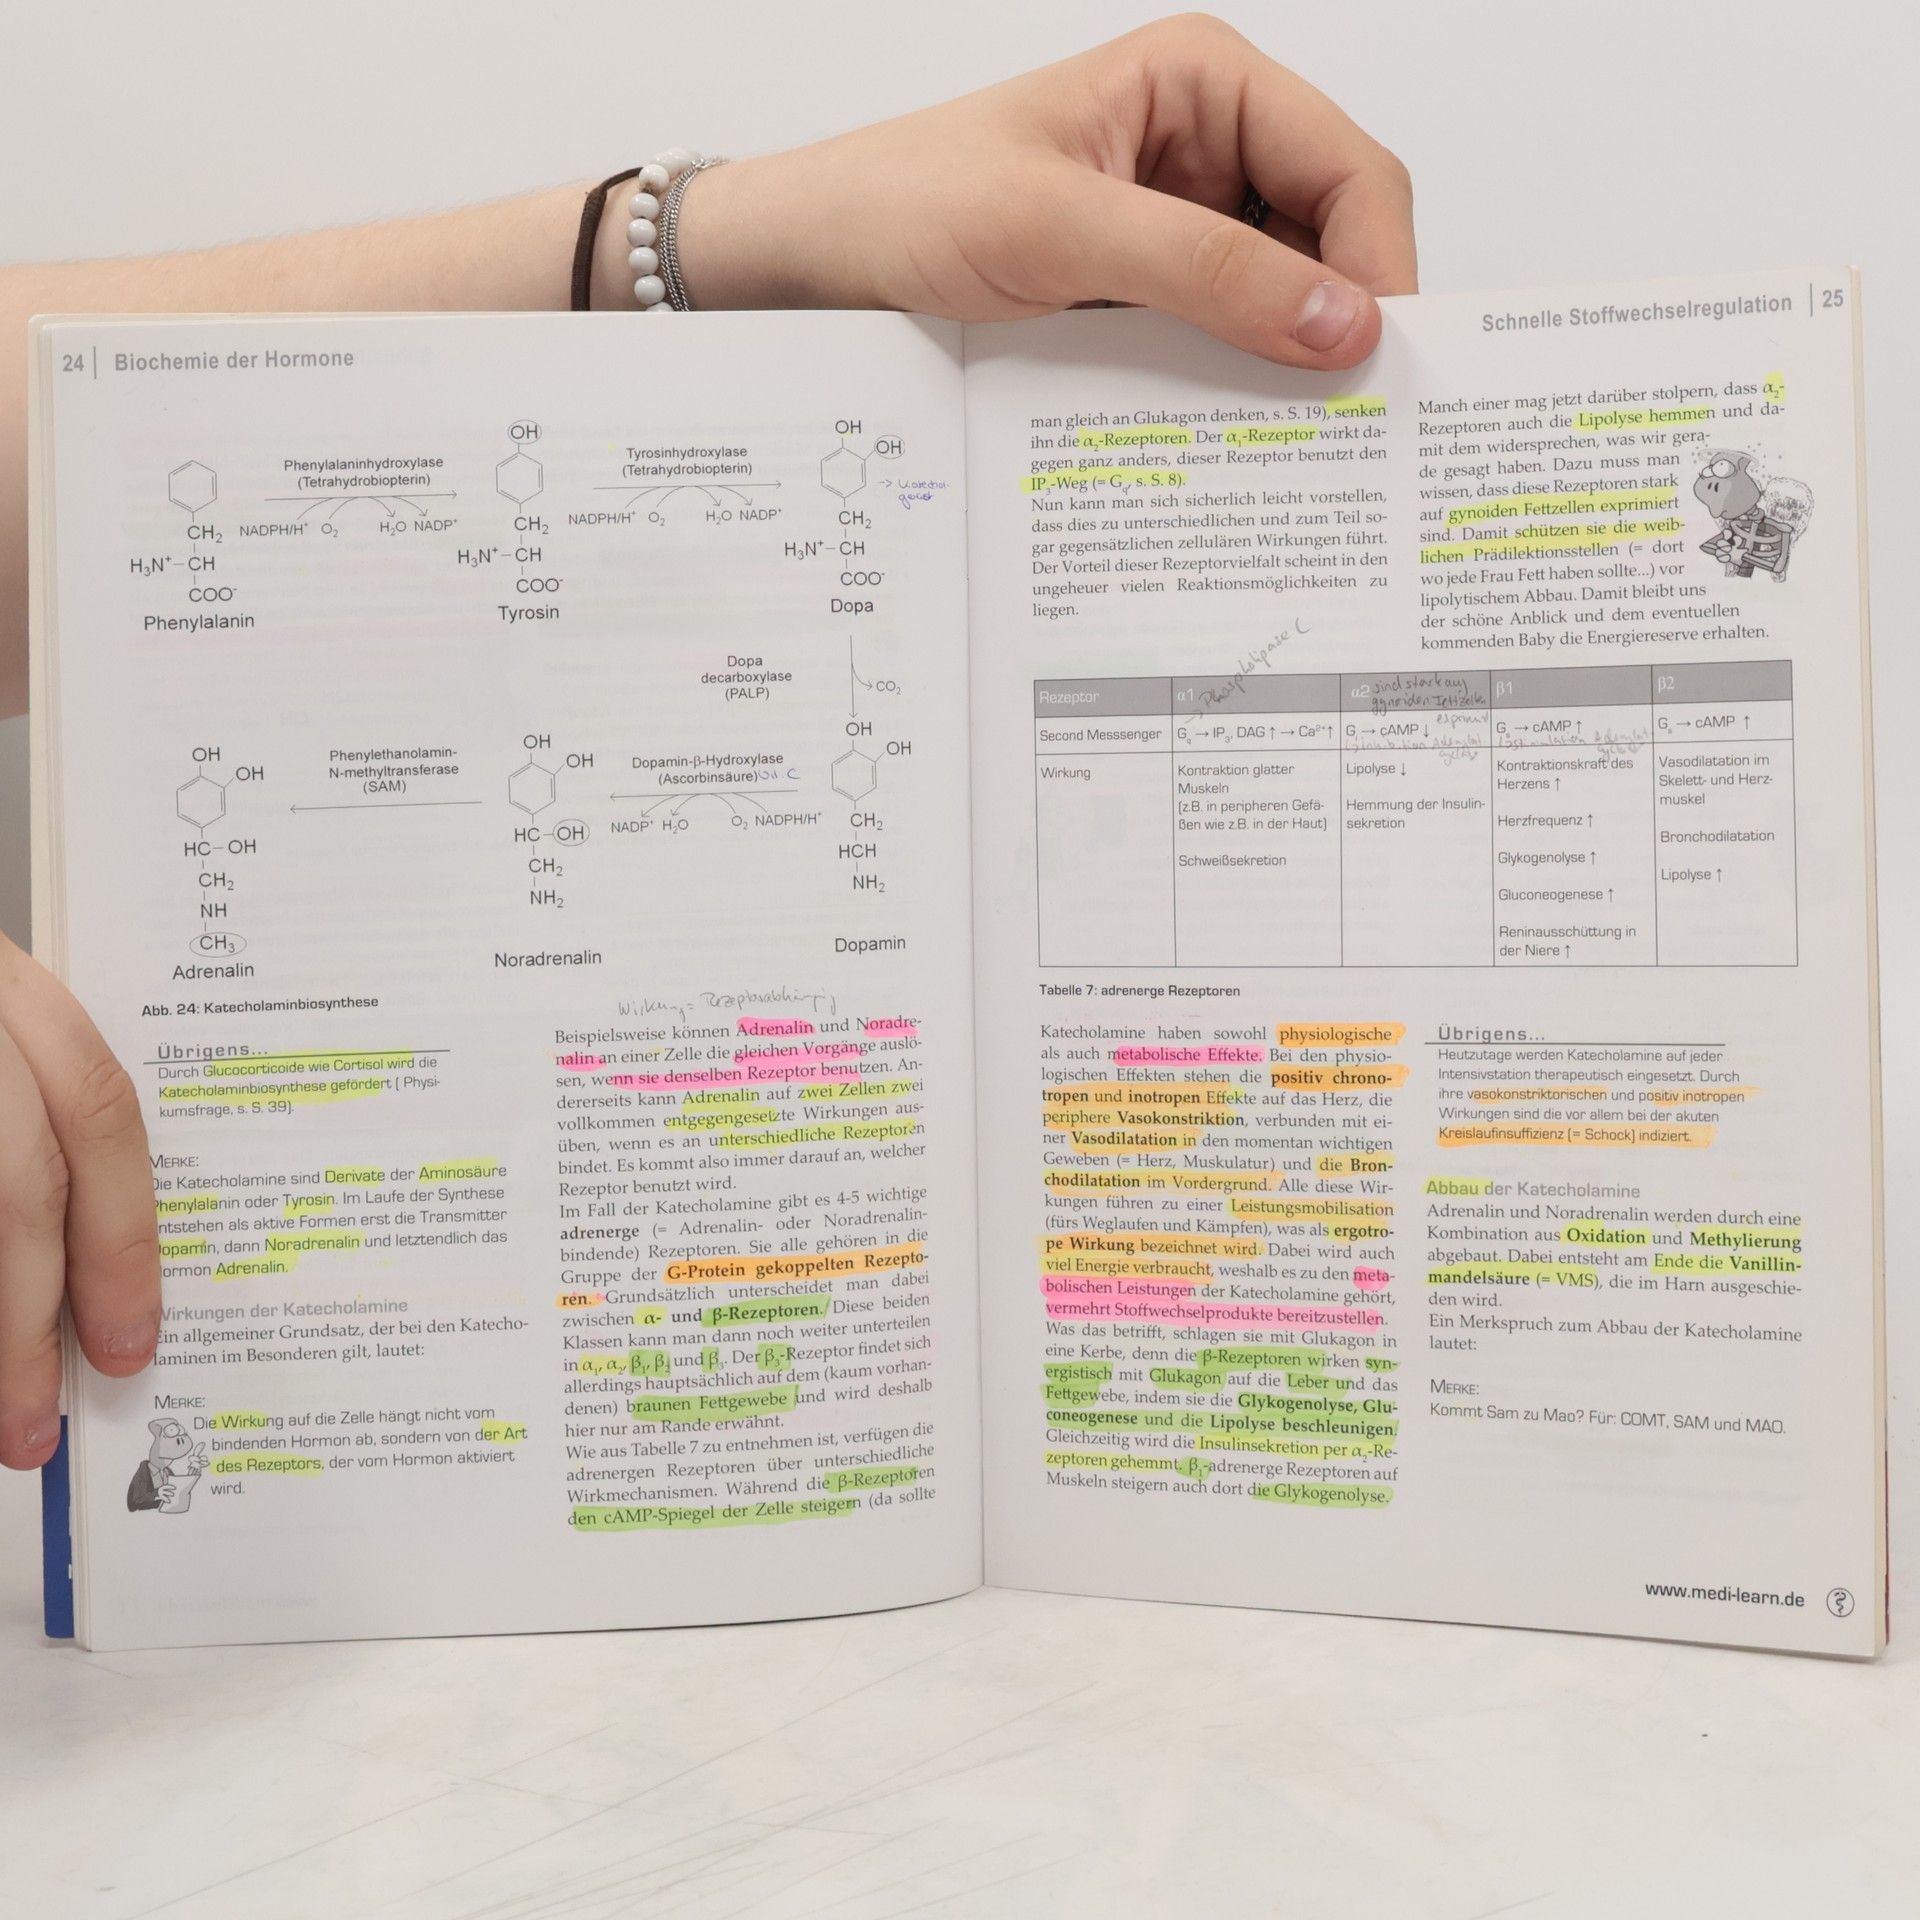 24 | Biochemie der Hormone
OH
OH
OH
Phenylalaninhydroxylase
(Tetrahydrobiopterin)
Tyrosinhydroxylase
(Tetrahydrobiopterin)
NADPH/H⁺ O₂ H₂O NADP⁺
NADPH/H⁺ O₂ H₂O NADP⁺
CH₂
H₃N⁺–CH
COO⁻
Phenylalanin
CH₂
H₃N⁺–CH
COO⁻
Tyrosin
CH₂
H₃N⁺–CH
COO⁻
Dopa
Dopa
decarboxylase
(PALP)
CO₂
OH
OH
Phenylethanolamin-
N-methyltransferase
(SAM)
OH
OH
Dopamin-β-Hydroxylase
(Ascorbinsäure) Vit. C
OH
OH
NADP⁺ H₂O O₂ NADPH/H⁺
HC–OH
CH₂
NH
CH₃
Adrenalin
HC–OH
CH₂
NH₂
Noradrenalin
CH₂
HCH
NH₂
Dopamin
Abb. 24: Katecholaminbiosynthese
Übrigens...
Durch Glucocorticoide wie Cortisol wird die
Katecholaminbiosynthese gefördert [ Physi-
kumsfrage, s. S. 39].
MERKE:
Die Katecholamine sind Derivate der Aminosäure
Phenylalanin oder Tyrosin. Im Laufe der Synthese
ntstehen als aktive Formen erst die Transmitter
opamin, dann Noradrenalin und letztendlich das
ormon Adrenalin.
Wirkungen der Katecholamine
Ein allgemeiner Grundsatz, der bei den Katecho-
laminen im Besonderen gilt, lautet:
MERKE:
Die Wirkung auf die Zelle hängt nicht vom
bindenden Hormon ab, sondern von der Art
des Rezeptors, der vom Hormon aktiviert
wird.
Wirkung = Rezeptorabhängig
Beispielsweise können Adrenalin und Noradre-
nalin an einer Zelle die gleichen Vorgänge auslö-
sen, wenn sie denselben Rezeptor benutzen. An-
dererseits kann Adrenalin auf zwei Zellen zwei
vollkommen entgegengesetzte Wirkungen aus-
üben, wenn es an unterschiedliche Rezeptoren
bindet. Es kommt also immer darauf an, welcher
Rezeptor benutzt wird.
Im Fall der Katecholamine gibt es 4-5 wichtige
adrenerge (= Adrenalin- oder Noradrenalin-
bindende) Rezeptoren. Sie alle gehören in die
Gruppe der G-Protein gekoppelten Rezepto-
ren. Grundsätzlich unterscheidet man dabei
zwischen α- und β-Rezeptoren. Diese beiden
Klassen kann man dann noch weiter unterteilen
in α₁, α₂, β₁, β₂ und β₃. Der β₃-Rezeptor findet sich
allerdings hauptsächlich auf dem (kaum vorhan-
denen) braunen Fettgewebe und wird deshalb
hier nur am Rande erwähnt.
Wie aus Tabelle 7 zu entnehmen ist, verfügen die
adrenergen Rezeptoren über unterschiedliche
Wirkmechanismen. Während die β-Rezeptoren
den cAMP-Spiegel der Zelle steigern (da sollte
Schnelle Stoffwechselregulation | 25
man gleich an Glukagon denken, s. S. 19), senken
ihn die α₂-Rezeptoren. Der α₁-Rezeptor wirkt da-
gegen ganz anders, dieser Rezeptor benutzt den
IP₃-Weg (= Gq, s. S. 8).
Nun kann man sich sicherlich leicht vorstellen,
dass dies zu unterschiedlichen und zum Teil so-
gar gegensätzlichen zellulären Wirkungen führt.
Der Vorteil dieser Rezeptorvielfalt scheint in den
ungeheuer vielen Reaktionsmöglichkeiten zu
liegen.
Manch einer mag jetzt darüber stolpern, dass α₂-
Rezeptoren auch die Lipolyse hemmen und da-
mit dem widersprechen, was wir gera-
de gesagt haben. Dazu muss man
wissen, dass diese Rezeptoren stark
auf gynoiden Fettzellen exprimiert
sind. Damit schützen sie die weib-
lichen Prädilektionsstellen (= dort
wo jede Frau Fett haben sollte...) vor
lipolytischem Abbau. Damit bleibt uns
der schöne Anblick und dem eventuellen
kommenden Baby die Energiereserve erhalten.
→ Phospholipase C
Rezeptor α1 α2 sind stark auf β1 β2
gynoiden Fettzellen
Second Messsenger Gq → IP₃, DAG ↑ → Ca²⁺↑ Gi → cAMP ↓ Gs → cAMP ↑ Gs → cAMP ↑
Wirkung
Kontraktion glatter
Muskeln
[z.B. in peripheren Gefä-
ßen wie z.B. in der Haut]
Schweißsekretion
Lipolyse ↓
Hemmung der Insulin-
sekretion
Kontraktionskraft des
Herzens ↑
Herzfrequenz ↑
Glykogenolyse ↑
Gluconeogenese ↑
Reninausschüttung in
der Niere ↑
Vasodilatation im
Skelett- und Herz-
muskel
Bronchodilatation
Lipolyse ↑
Tabelle 7: adrenerge Rezeptoren
Katecholamine haben sowohl physiologische
als auch metabolische Effekte. Bei den physio-
logischen Effekten stehen die positiv chrono-
tropen und inotropen Effekte auf das Herz, die
periphere Vasokonstriktion, verbunden mit ei-
ner Vasodilatation in den momentan wichtigen
Geweben (= Herz, Muskulatur) und die Bron-
chodilatation im Vordergrund. Alle diese Wir-
kungen führen zu einer Leistungsmobilisation
(fürs Weglaufen und Kämpfen), was als ergotro-
pe Wirkung bezeichnet wird. Dabei wird auch
viel Energie verbraucht, weshalb es zu den meta-
bolischen Leistungen der Katecholamine gehört,
vermehrt Stoffwechselprodukte bereitzustellen.
Was das betrifft, schlagen sie mit Glukagon in
eine Kerbe, denn die β-Rezeptoren wirken syn-
ergistisch mit Glukagon auf die Leber und das
Fettgewebe, indem sie die Glykogenolyse, Glu-
coneogenese und die Lipolyse beschleunigen.
Gleichzeitig wird die Insulinsekretion per α₂-Re-
zeptoren gehemmt. β₁-adrenerge Rezeptoren auf
Muskeln steigern auch dort die Glykogenolyse.
Übrigens...
Heutzutage werden Katecholamine auf jeder
Intensivstation therapeutisch eingesetzt. Durch
ihre vasokonstriktorischen und positiv inotropen
Wirkungen sind die vor allem bei der akuten
Kreislaufinsuffizienz [= Schock] indiziert.
Abbau der Katecholamine
Adrenalin und Noradrenalin werden durch eine
Kombination aus Oxidation und Methylierung
abgebaut. Dabei entsteht am Ende die Vanillin-
mandelsäure (= VMS), die im Harn ausgeschie-
den wird.
Ein Merkspruch zum Abbau der Katecholamine
lautet:
MERKE:
Kommt Sam zu Mao? Für: COMT, SAM und MAO.
www.medi-learn.de